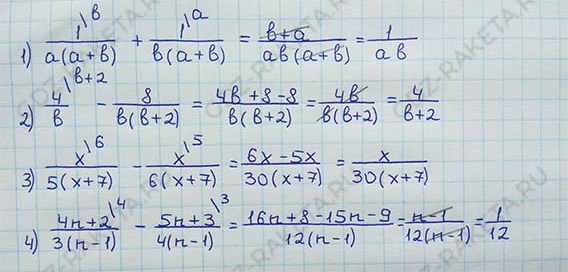 1) 1\ᵇ/a(a+b) + 1\ᵃ/b(a+b) = b+a/ab(a+b) = 1/ab
2) 4\ᵇ⁺²/b - 8/b(b+2) = 4b+8-8/b(b+2) = 4b/b(b+2) = 4/b+2
3) x\⁶/5(x+7) - x\⁵/6(x+7) = 6x-5x/30(x+7) = x/30(x+7)
4) 4n+2\⁴/3(n-1) - 5n+3\³/4(n-1) = 16n+8-15n-9/12(n-1) = n-1/12(n-1) = 1/12